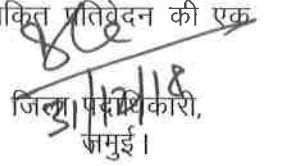 कित प्रतिवेदन की एक
31/12/18
जिला पदाधिकारी,
जमुई।